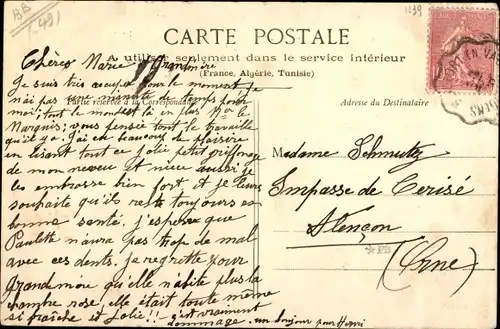 BB
491
1239
CARTE POSTALE
A utiliser seulement dans le service intérieur
(France, Algérie, Tunisie)
Partie réservée à la Correspondance
Adresse du Destinataire
Chères Marie Grandmère
Je suis très occupé pour le moment je
n'ai pas une minute de temps pour
moi; tout le monde est là en plus Mr le
Marquis; vous pensez tout le travaille
qu'il y a. J'ai eut beaucoup de plaisire
en lisant tout ce jolie petit griffonage
de mon neveu et niece aussi je
les embrasse bien fort, et je leurs
souhaite qu'ils reste toujours en
bonne santé. j'espère que
Paulette n'aura pas trop de mal
avec ces dents. je regrette pour
Grandmère qu'elle n'abite plus la
chambre rose, elle était toute même
si fraîche et jolie!! c'est vraiment
dommage. un bonjour pour Henri
Madame Schmutz
Impasse de Cerisé
Alençon
(Orne)